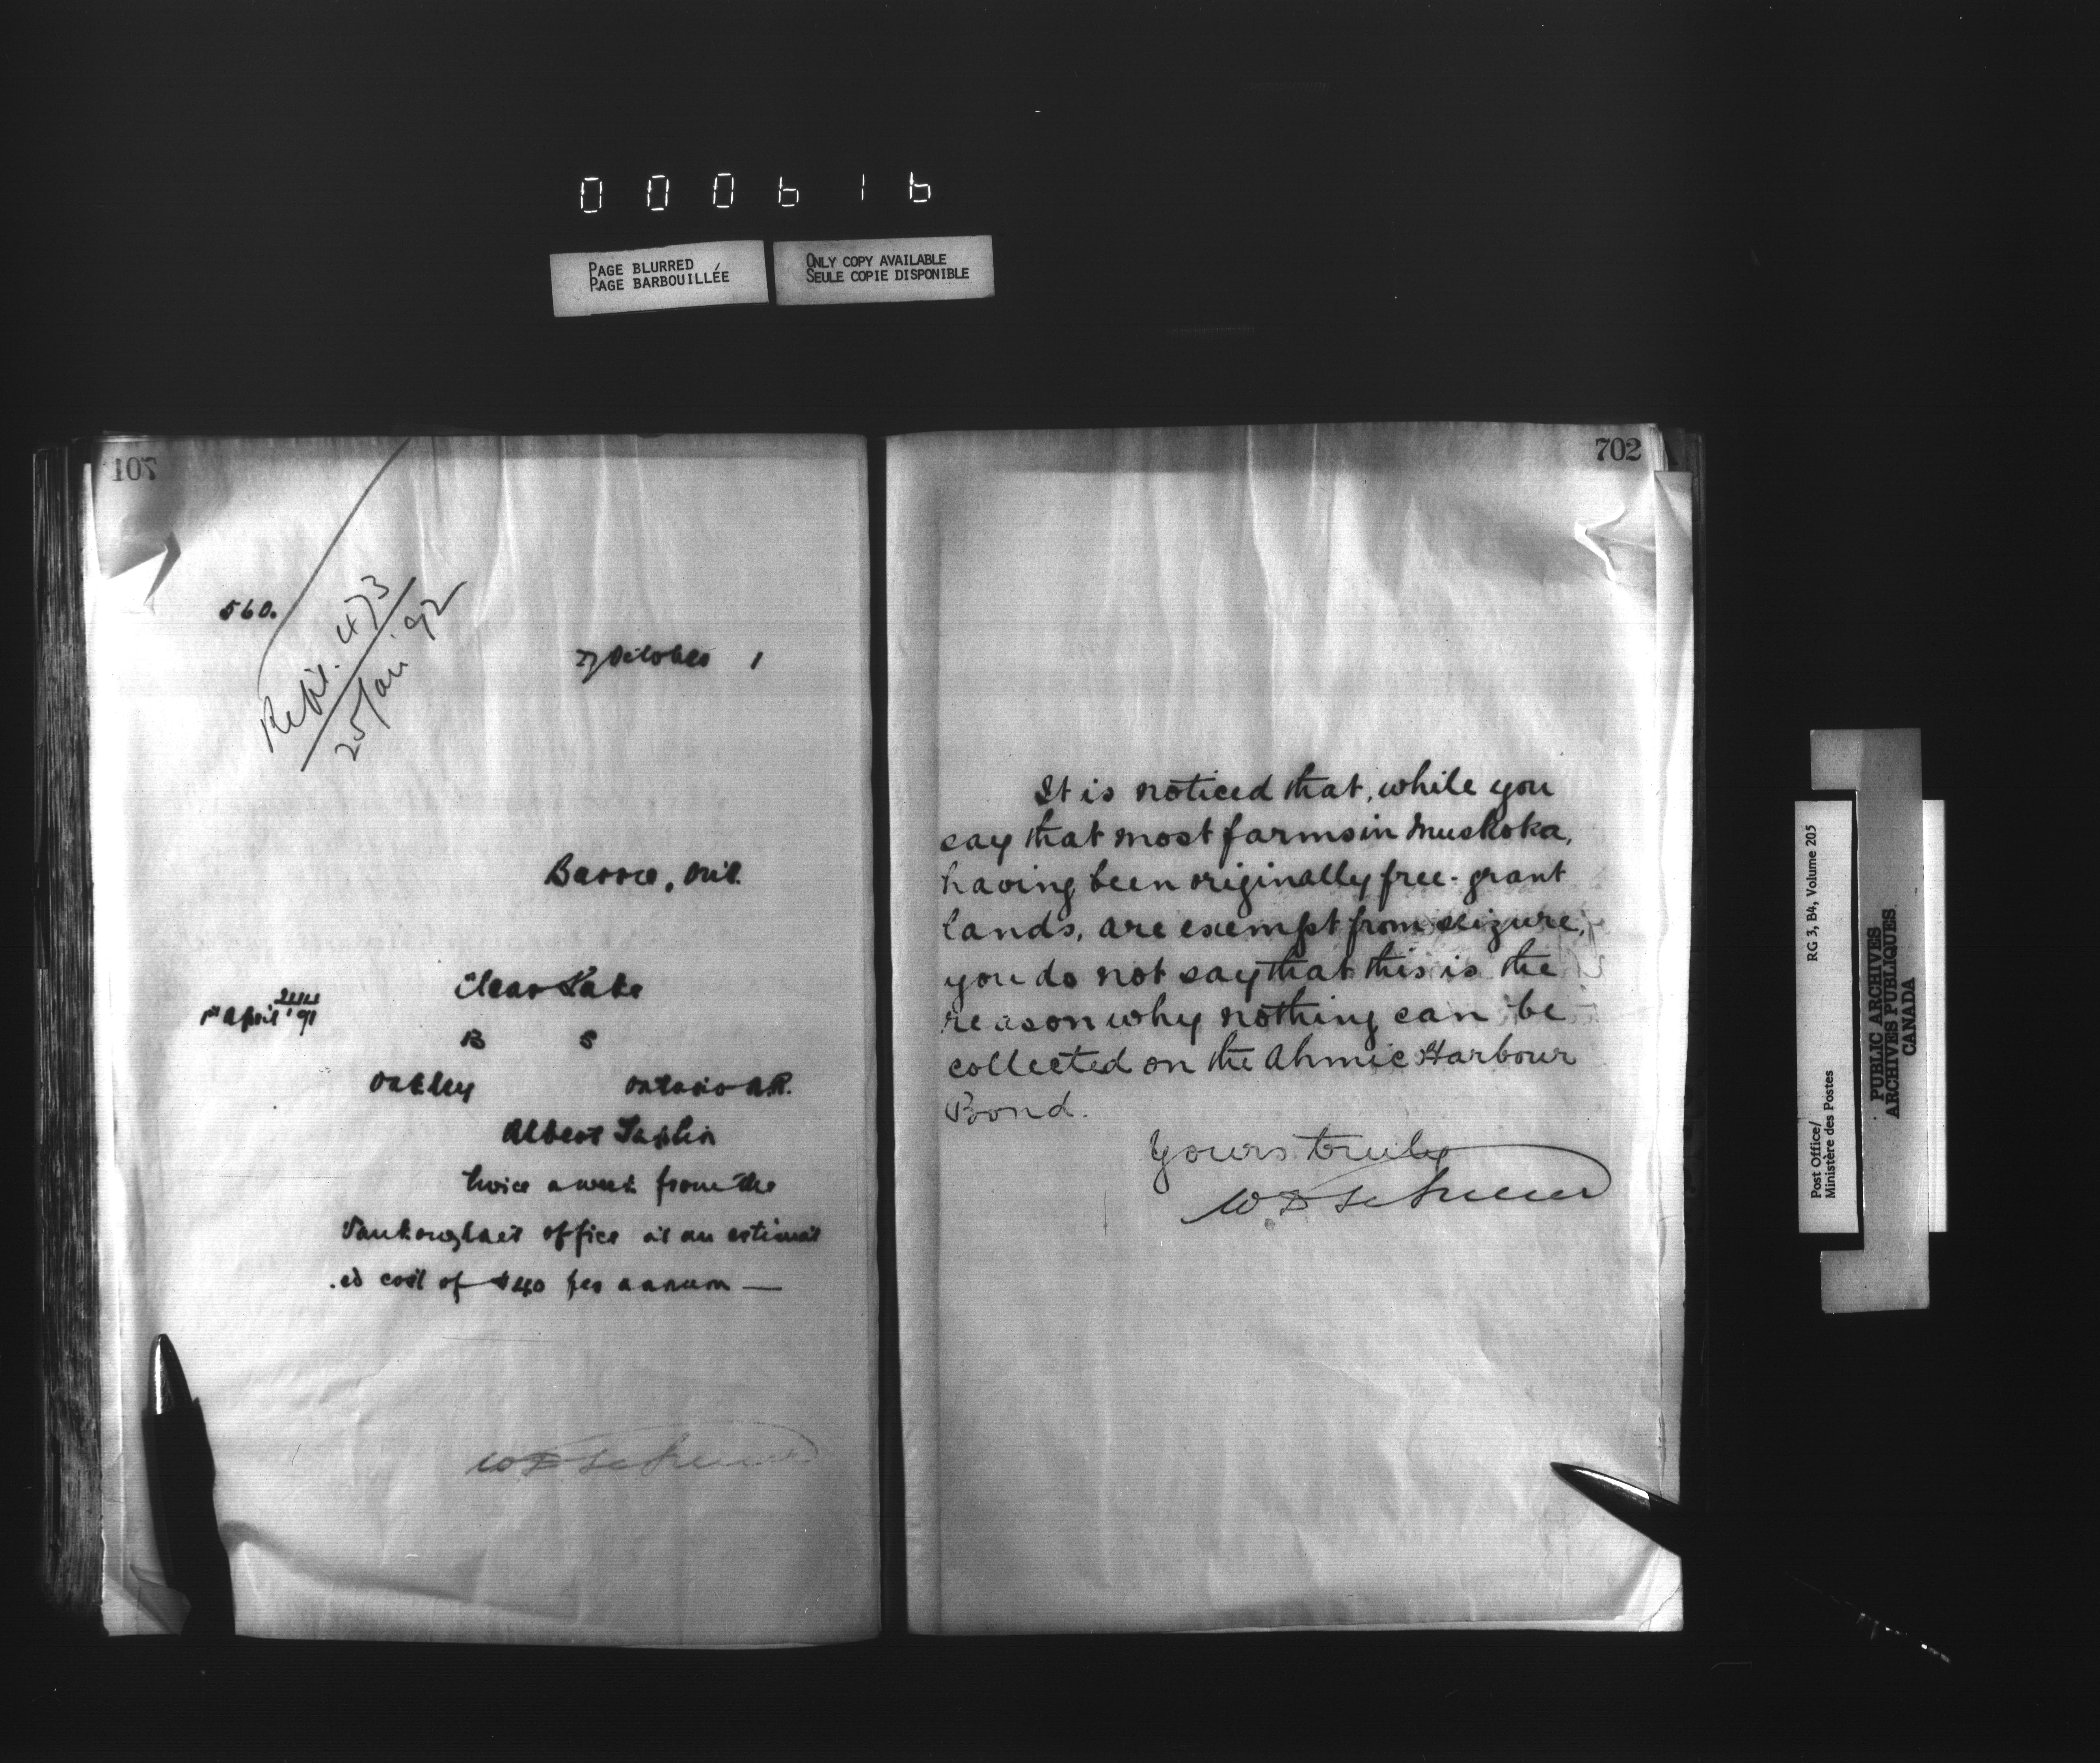 000616
PAGE BLURRED
PAGE BARBOUILLÉE
ONLY COPY AVAILABLE
SEULE COPIE DISPONIBLE
560.
27 October 1
473
25 Jan. 92
Barrie, Ont.
Clear Lake
1st April '91
B S
Oakley Ontario N.R.
Albert
twice a week from the
Vankoughnet office at an estimat
.ed cost of $40 per annum —
702
It is noticed that, while you
say that most farms in Muskoka,
having been originally free-grant
lands, are exempt from seizure,
you do not say that this is the
reason why nothing can be
collected on the Ahmic Harbour
Bond.
Yours truly
W D
Post Office/
Ministère des Postes
RG 3, B4, Volume 205
PUBLIC ARCHIVES
ARCHIVES PUBLIQUES
CANADA